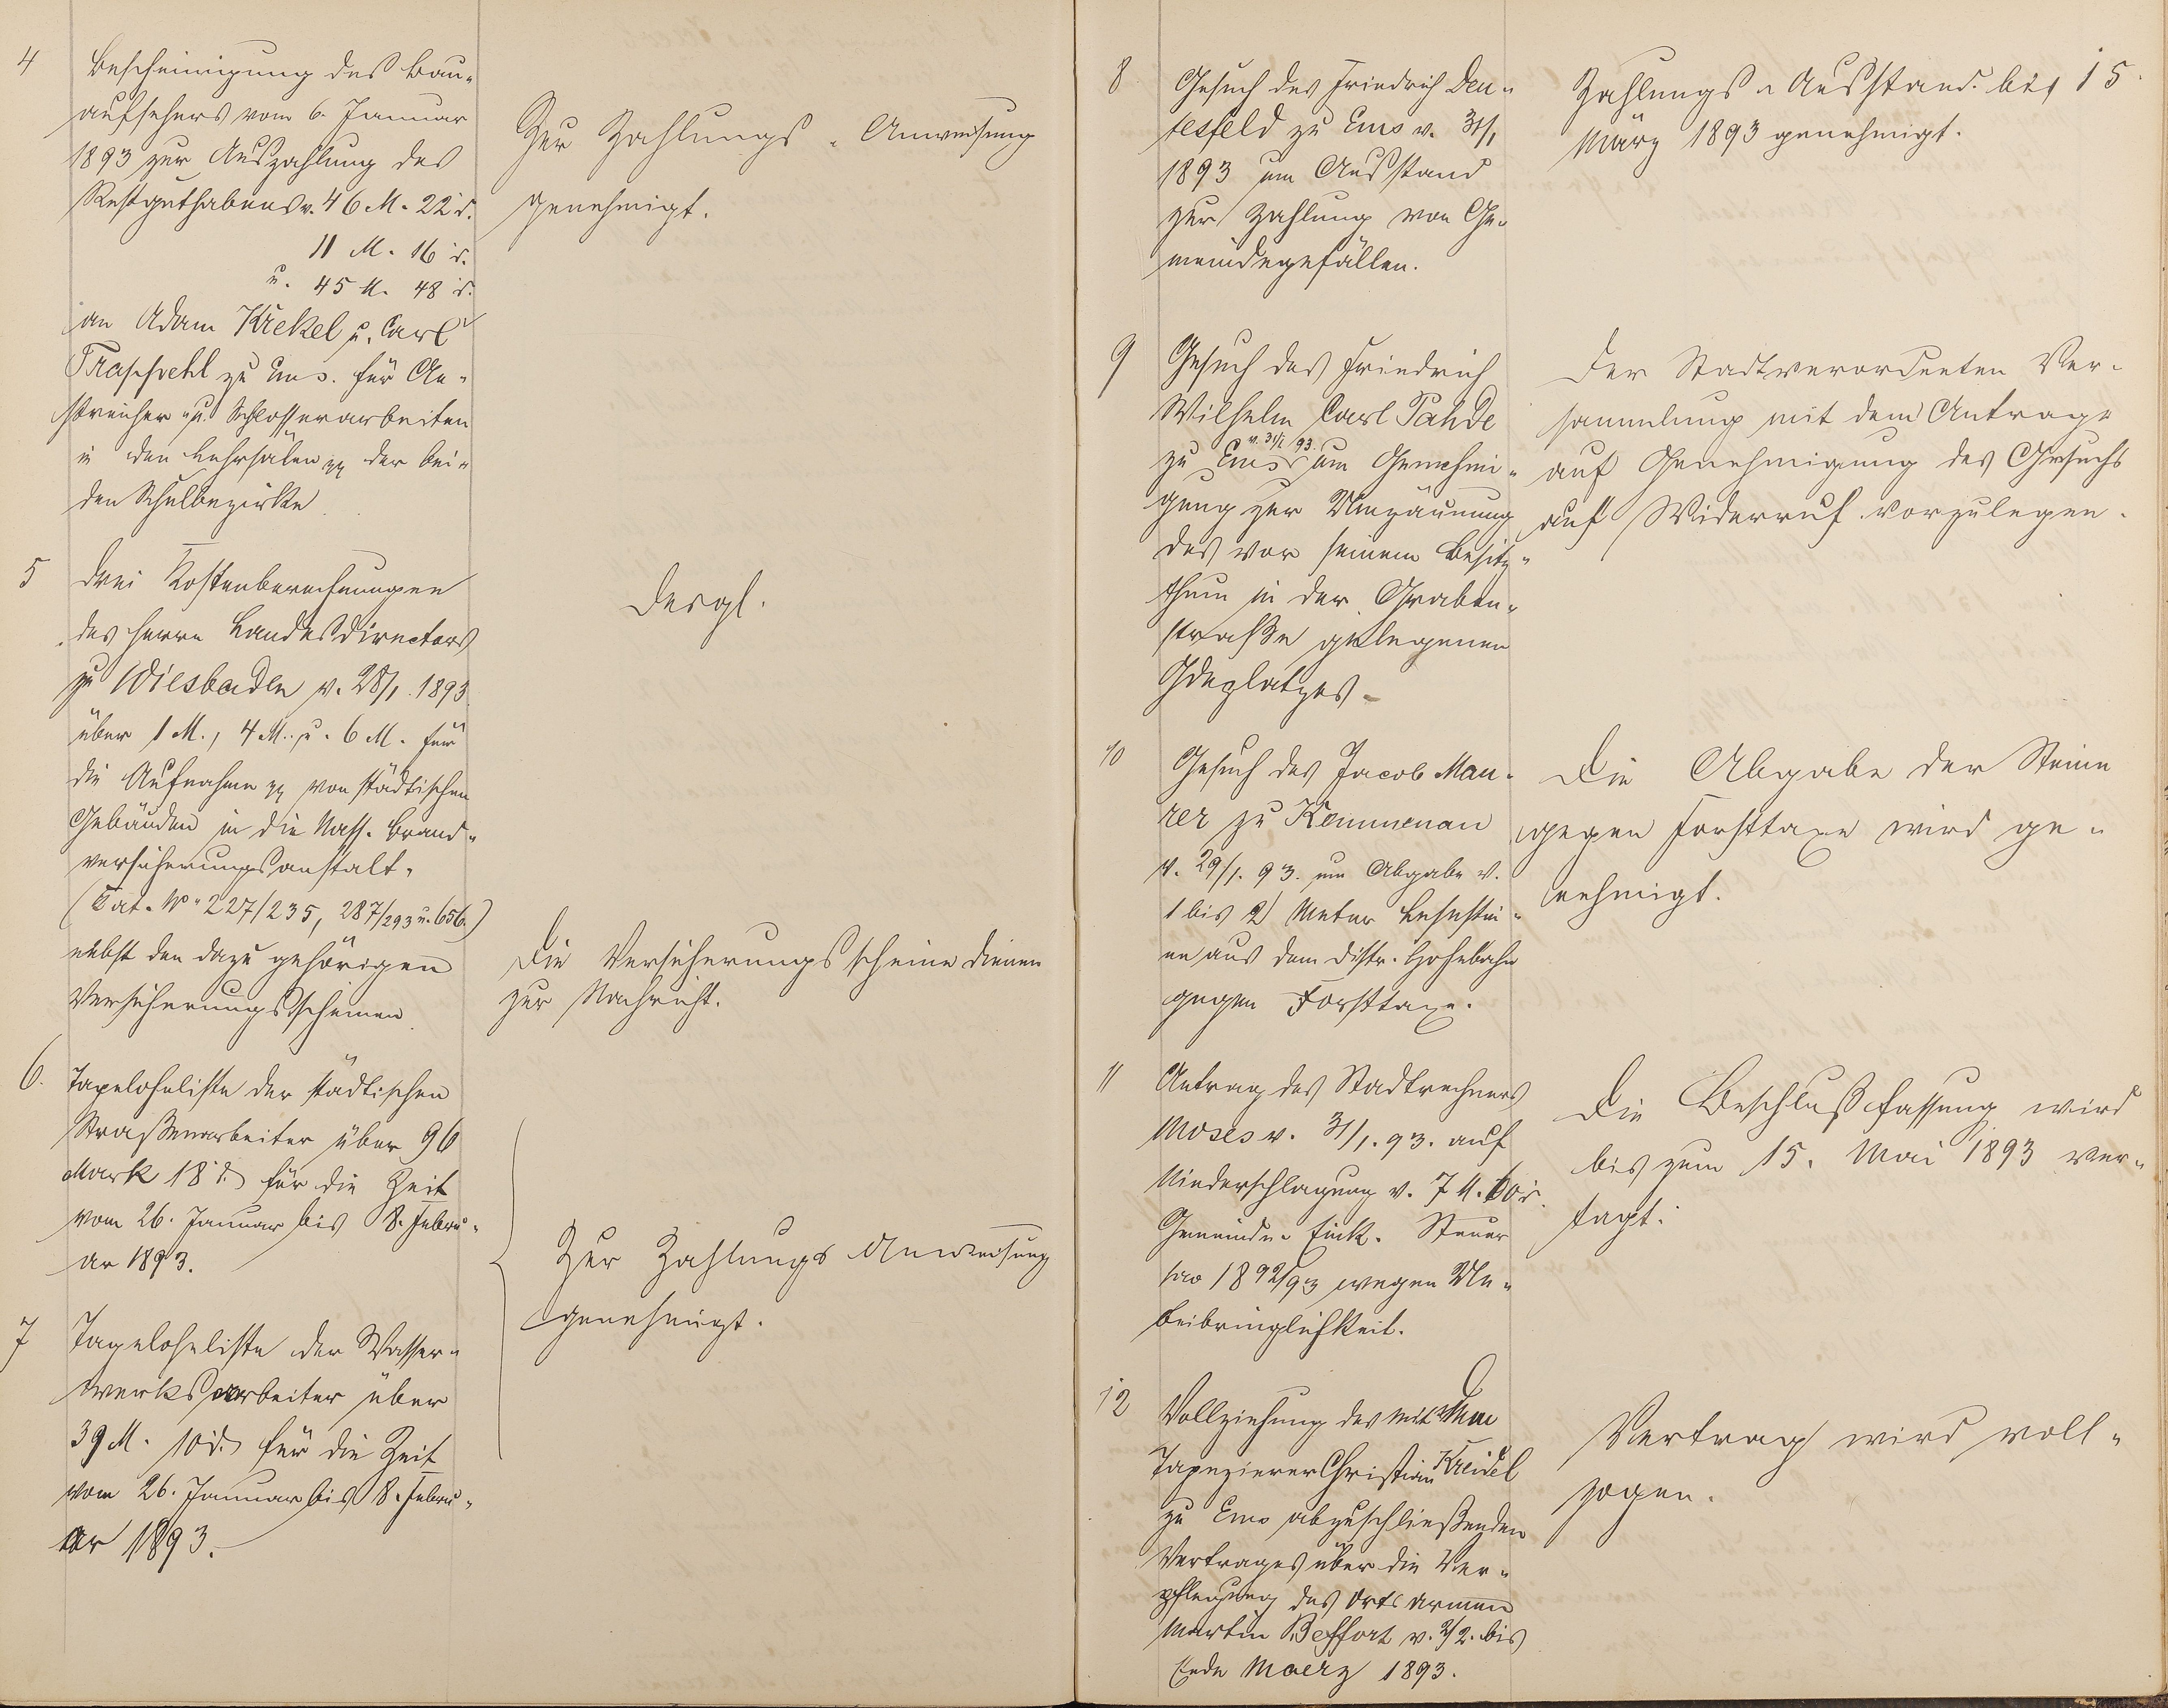 4
Bescheinigung des Bau-
aufsehers vom 6. Januar
1893 zur Auszahlung des
Restguthabens v. 46 M. 22 d.
11 M. 16 d.
u. 45 M. 48 d.
an Adam Krekel u. Carl
zu Ems. für An-
streicher u. Schlosserarbeiten
in den Lehrsälen pp der bei-
den Schulbezirke
Zur Zahlungs-Anweisung
genehmigt.
5
Drei Kostenberechnungen
des Herrn Landesdirectors
zu Wiesbaden v. 28/1. 1893
über 1 M., 4 M. u. 6 M. für
die Aufnahme pp von städtischen
Gebäuden in die Nass. Brand-
versicherungsanstalt.
(Cat. No 227/235, 287/293 u. 656.)
nebst den dazu gehörigen
Versicherungsscheinen
Desgl.
Die Versicherungsscheine dienen
zur Nachricht.
6.
Tagelohnliste der städtischen
Straßenarbeiter über 96
Mark 18 d. für die Zeit
vom 26. Januar bis 8. Febru-
ar 1893.
7
Tagelohnliste der Wasser-
werksarbeiter über
39 M. 10 d. für die Zeit
vom 26. Januar bis 8. Febru-
ar 1893.
Zur Zahlungs Anweisung
genehmigt.
8
Gesuch des Friedrich Deu-
tesfeld zu Ems v. 31/1
1893 um Ausstand
zur Zahlung von Ge-
meindegefällen.
Zahlungs-Ausstand bis 15.
März 1893 genehmigt.
9
Gesuch des Friedrich
Wilhelm Carl Pahde
zu Ems v. 31/1 93. um Genehmi-
gung zur Umzäunung
des vor seinem Besitz-
thum in der Graben-
straße gelegenen
Gdeplatzes.
Der Stadtverordneten Ver-
sammlung mit dem Antrage
auf Genehmigung des Gesuchs
auf Widerruf vorzulegen.
10
Gesuch des Jacob Mau-
rer zu Kemmenau
v. 29/1. 93. um Abgabe v.
1 bis 2 Meter Lesestei-
ne aus dem Distr. Hohebahn
gegen Forsttaxe.
Die Abgabe der Steine
gegen Forsttaxe wird ge-
nehmigt.
11
Antrag des Stadtrechners
Moses v. 31/1. 93. auf
Niederschlagung v. 7 M. 60 d.
Gemeinde-Eink. Steuer
pro 1892/93 wegen Un-
beibringlichkeit.
Die Beschlußfassung wird
bis zum 15. Mai 1893 ver-
tagt.
12
Vollziehung des mit dem
Tapezierer Christian Kreidel
zu Ems abzuschließenden
Vertrages über die Ver-
pflegung des Ortsarmen
Martin Beffort v. 2/2. bis
Ende Maerz 1893.
Vertrag wird voll-
zogen.